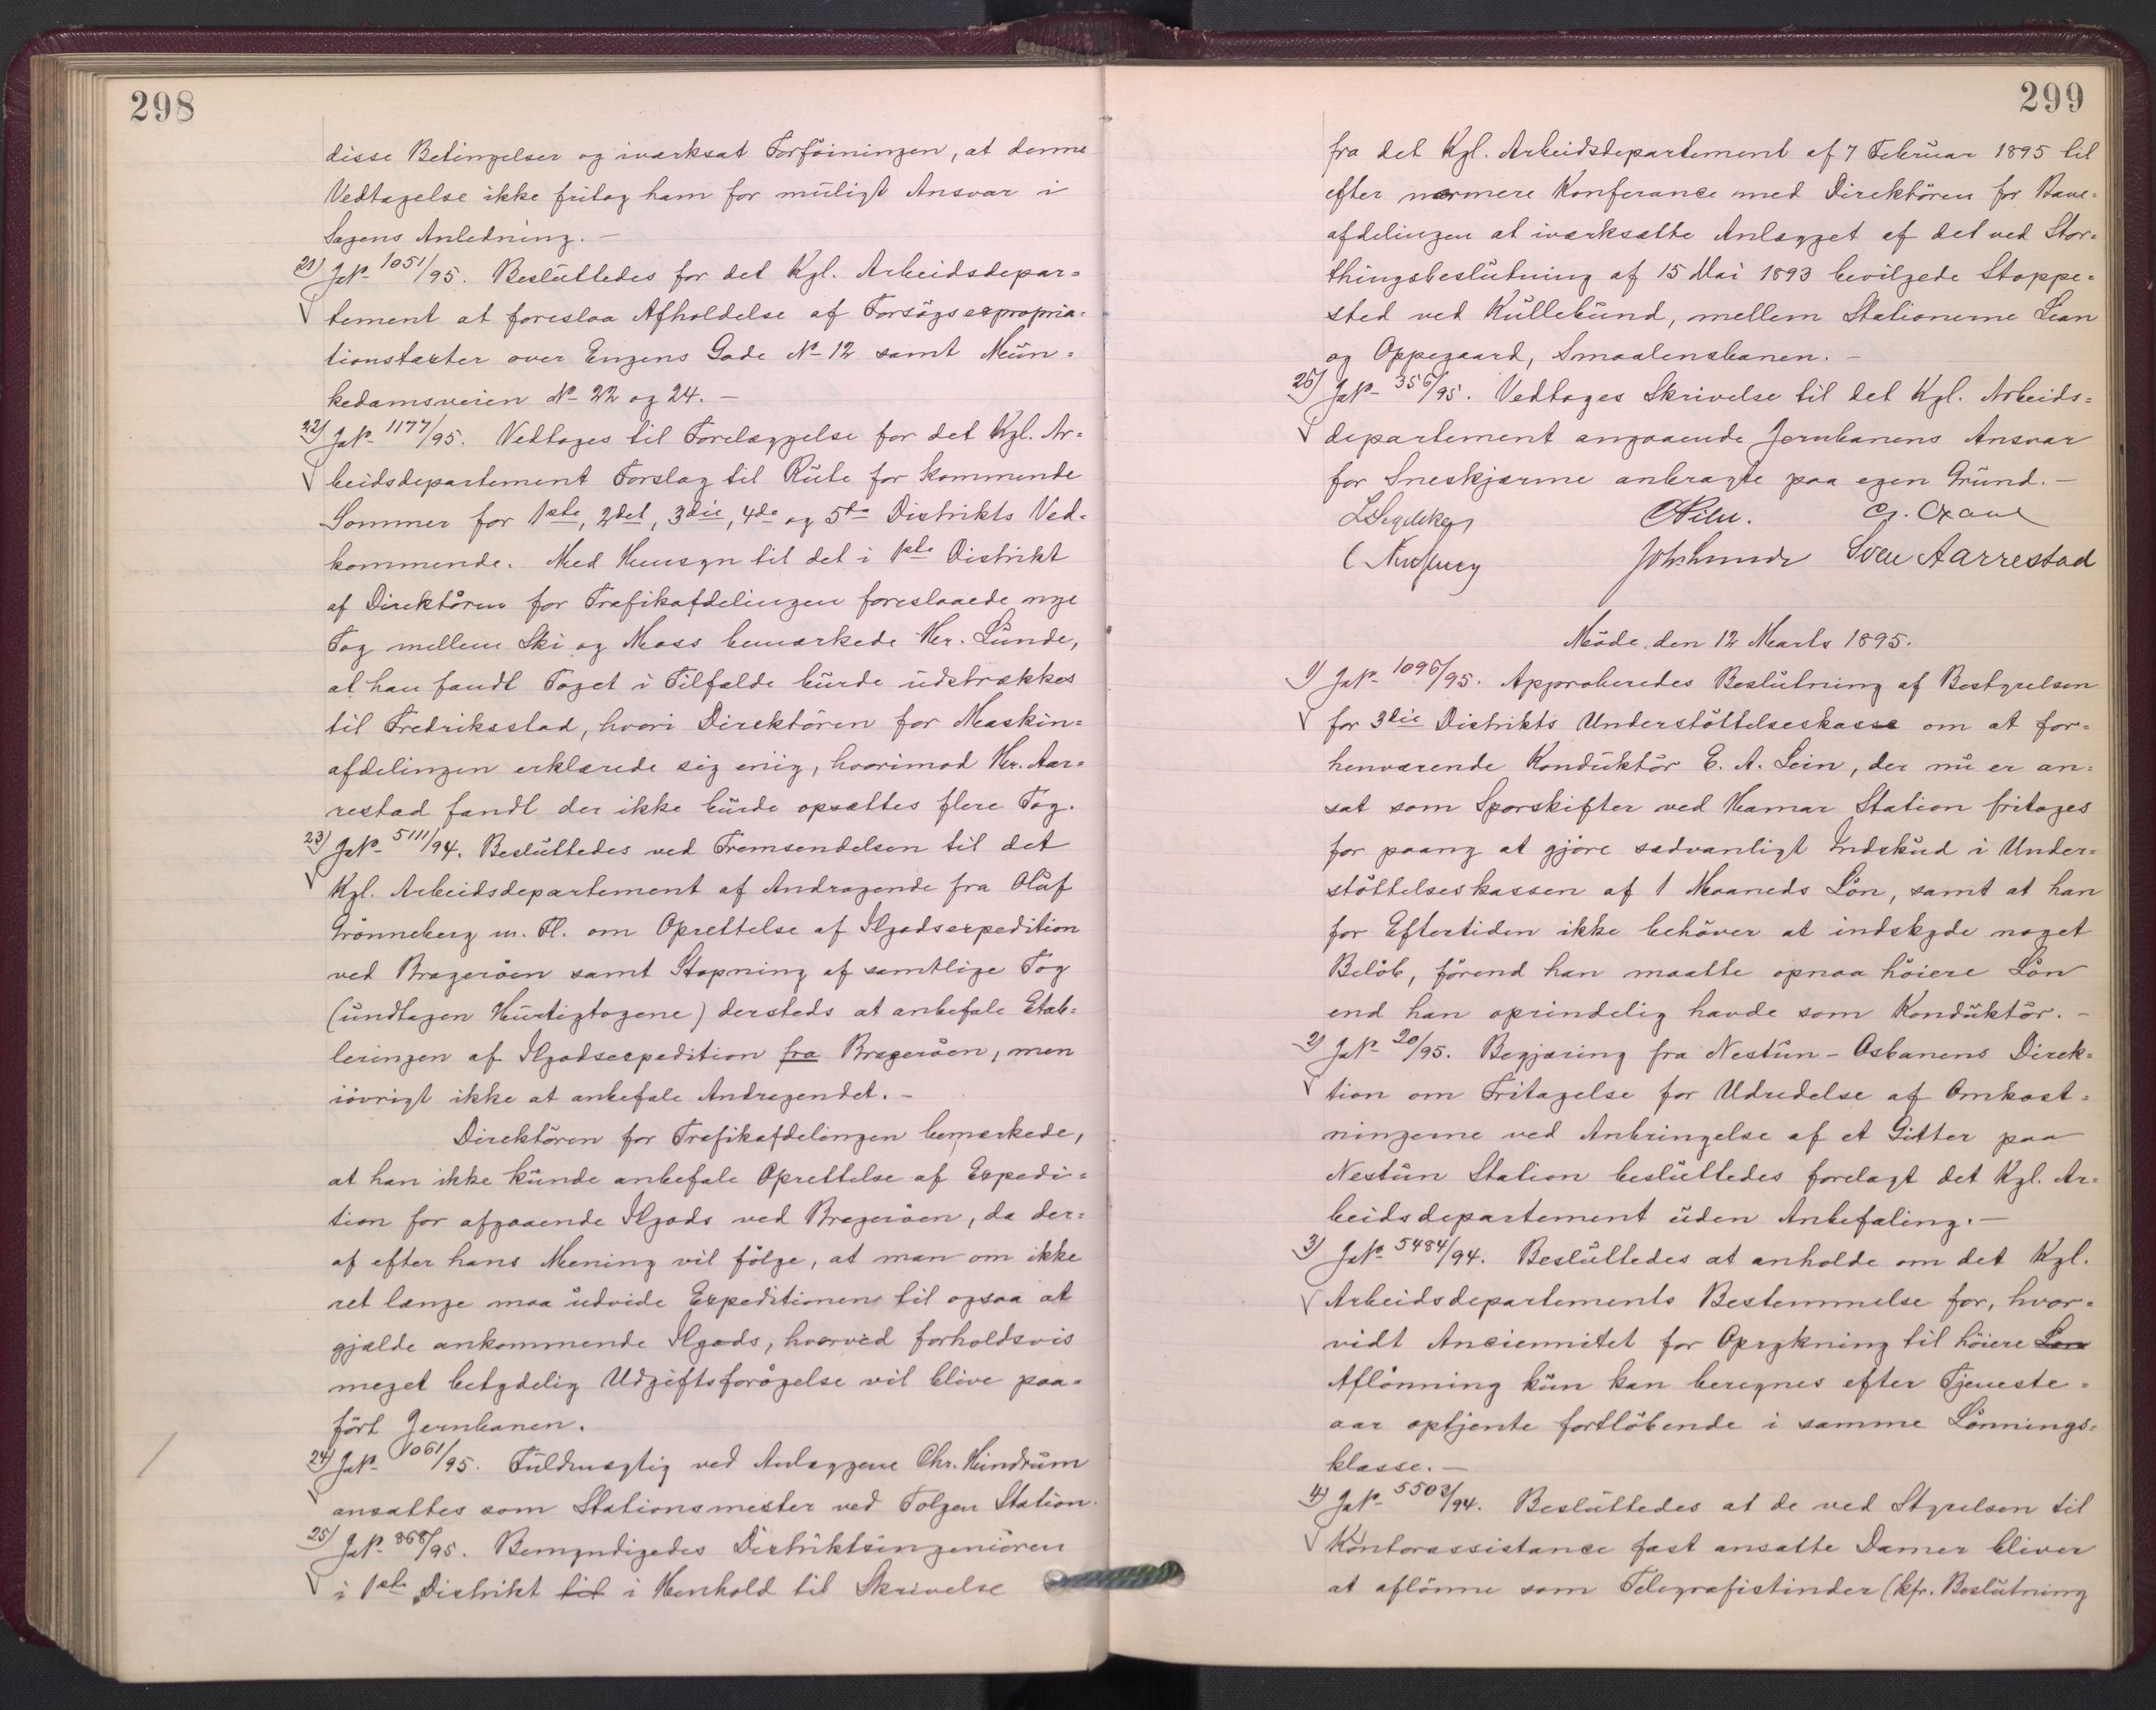 298
disse Betingelser og iværksat Forföiningen, at denne
Vedtagelse ikke fritog ham for muligt Ansvar i
Sagens Anledning. —
21) JNo 1051/95. Besluttedes for det Kgl. Arbeidsdepar=
tement at foreslaa Afholdelse af Forsögsexpropria=
tionstaxter over Engens Gade No 12 samt Mun=
kedamsveien No 22 og 24. —
22) JNo 1177/95. Vedtoges til Forelæggelse for det Kgl. Ar=
beidsdepartement Forslag til Rute for kommende
Sommer for 1ste, 2det, 3die, 4de og 5te Distrikts Ved=
kommende. Med Hensyn til det i 1ste Distrikt
af Direktören for Trafikafdelingen foreslaaede nye
Tog mellem Ski og Moss bemærkede Hr. Lunde,
at han fandt Toget i Tilfælde burde udstrækkes
til Fredriksstad, hvori Direktören for Maskin=
afdelingen erklærede sig eniig, hvorimod Hr. Aar=
restad fandt der ikke burde opsættes flere Tog.
23) JNo 5111/94. Besluttedes ved Fremsendelsen til det
Kgl. Arbeidsdepartement af Andragende fra Oluf
Grönneberg m. Fl. om Oprettelse af Ilgodsexpedition
ved Brageröen samt Stopning af samtlige Tog
(undtagen Hurtigtogene) dersteds at anbefale Etab=
leringen af Ilgodsexpedition fra Bragerøen, men
iövrigt ikke at anbefale Andragendet. —
Direktören for Trafikafdelingen bemærkede,
at han ikke kunde anbefale Oprettelse af Expedi=
tion for afgaaende Ilgods ved Bragerøen, da der=
af efter hans Mening vil fölge, at man om ikke
ret længe maa udvide Expeditionen til ogsaa at
gjælde ankommende Ilgods, hvorved forholdsvis
meget betydelig Udgiftsforögelse vil blive paa=
fört Jernbanen.
24) JNo 1061/95. Fuldmægtig ved Anlæggene Chr. Hindrum
ansattes som Stationsmester ved Tolgen Station.
25) JNo 868/95. Bemyndigedes Distriktsingeniören
i 1ste Distrikt til i Henhold til Skrivelse
299
fra det Kgl. Arbeidsdepartement af 7 Februar 1895 til
efter nærmere Konferance med Direktören for Bane=
afdelingen at iværksætte Anlægget af det ved Stor=
thingsbeslutning af 15 Mai 1893 bevilgede Stoppe=
sted ved Kullebund, mellem Stationerne Lian
og Oppegaard, Smaalensbanen. —
26) JNo 356/95. Vedtoges Skrivelse til det Kgl. Arbeids=
departement angaaende Jernbanens Ansvar
for Sneskjærme anbragte paa egen Grund. —
CPihl.
Joh Lunde Sven Aarrestad
Möde den 12 Marts 1895.
1) JNo 1096/95. Approberedes Beslutning af Bestyrelsen
for 3die Distrikts Understöttelseskasse om at for=
henværende Konduktör E. A. Lein, der nu er an=
sat som Sporskifter ved Hamar Station fritages
for paany at gjöre sædvanligt Indskud i Under=
stöttelseskassen af 1 Maaneds Lön, samt at han
for Eftertiden ikke behöver at indskyde noget
Belöb, förend han maatte opnaa höiere Lön
end han oprindelig havde som Konduktör. —
2) JNo 20/95. Begjæring fra Nestun-Osbanens Direk=
tion om Fritagelse for Udredelse af Omkost=
ningerne ved Anbringelse af et Gitter paa
Nestun Station besluttedes forelagt det Kgl. Ar=
beidsdepartement uden Anbefaling. —
3) JNo 5484/94. Besluttedes at anholde om det Kgl.
Arbeidsdepartements Bestemmelse for, hvor=
vidt Anciennitet for Oprykning til höiere Løn
Aflönning kun kan beregnes efter Tjeneste=
aar optjente fortlöbende i samme Lönnings=
klasse. —
4) JNo 5502/94. Besluttedes at de ved Styrelsen til
Kontorassistance fast ansatte Damer bliver
at aflönne som Telegrafistinder (kfr. Beslutning